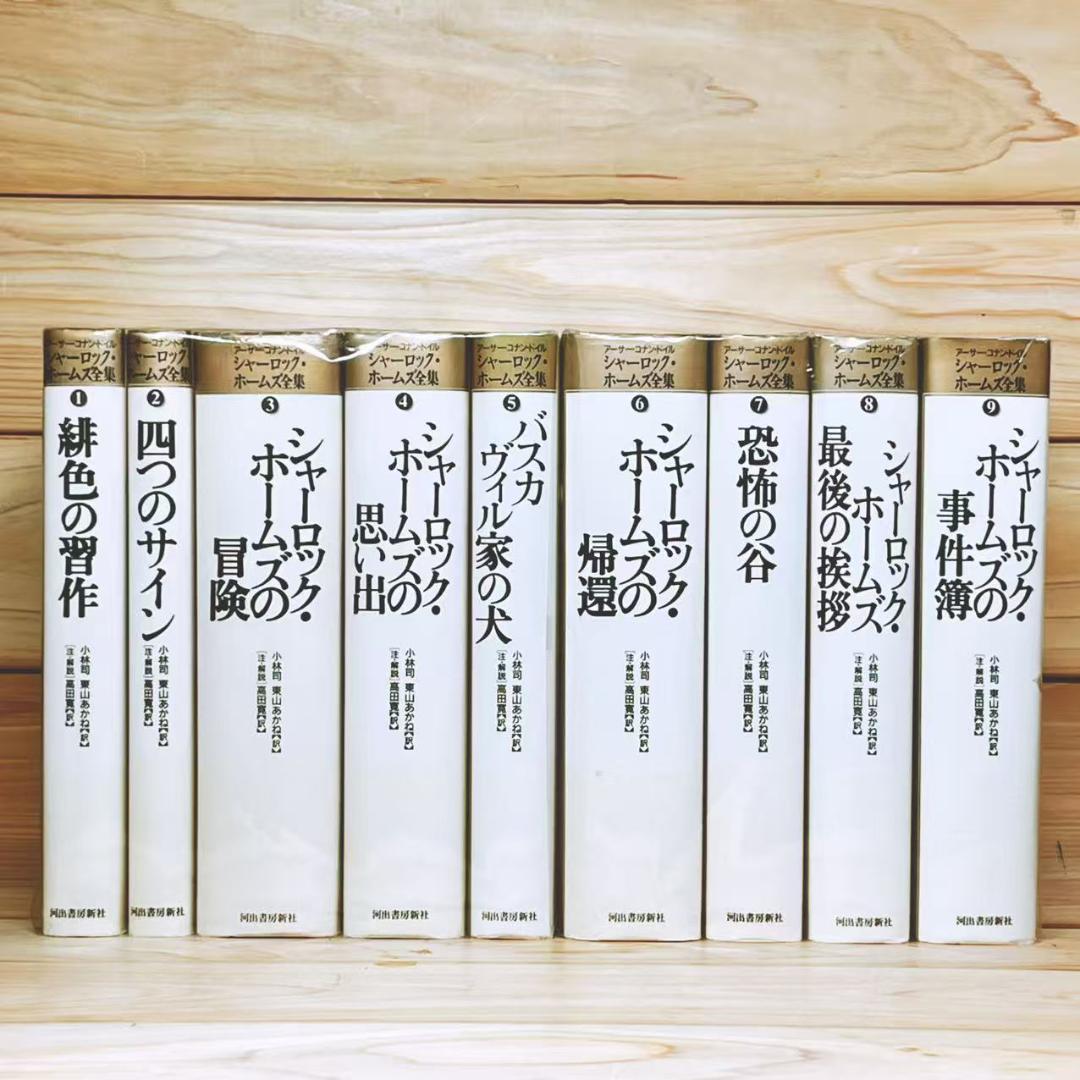 アーサー・コナン・ドイル
シャーロック・
ホームズ全集
1
緋色の習作
小林司 東山あかね[訳]
[注・解説]高田寛[訳]
河出書房新社
アーサー・コナン・ドイル
シャーロック・
ホームズ全集
2
四つのサイン
小林司 東山あかね[訳]
[注・解説]高田寛[訳]
河出書房新社
アーサー・コナン・ドイル
シャーロック・
ホームズ全集
3
シャーロック・
ホームズの
冒険
小林司 東山あかね[訳]
[注・解説]高田寛[訳]
河出書房新社
アーサー・コナン・ドイル
シャーロック・
ホームズ全集
4
シャーロック・
ホームズの
思い出
小林司 東山あかね[訳]
[注・解説]高田寛[訳]
河出書房新社
アーサー・コナン・ドイル
シャーロック・
ホームズ全集
5
バスカ
ヴィル家の犬
小林司 東山あかね[訳]
[注・解説]高田寛[訳]
河出書房新社
アーサー・コナン・ドイル
シャーロック・
ホームズ全集
6
シャーロック・
ホームズの
帰還
小林司 東山あかね[訳]
[注・解説]高田寛[訳]
河出書房新社
アーサー・コナン・ドイル
シャーロック・
ホームズ全集
7
恐怖の谷
小林司 東山あかね[訳]
[注・解説]高田寛[訳]
河出書房新社
アーサー・コナン・ドイル
シャーロック・
ホームズ全集
8
シャーロック・
ホームズ
最後の挨拶
小林司 東山あかね[訳]
[注・解説]高田寛[訳]
河出書房新社
アーサー・コナン・ドイル
シャーロック・
ホームズ全集
9
シャーロック・
ホームズの
事件簿
小林司 東山あかね[訳]
[注・解説]高田寛[訳]
河出書房新社